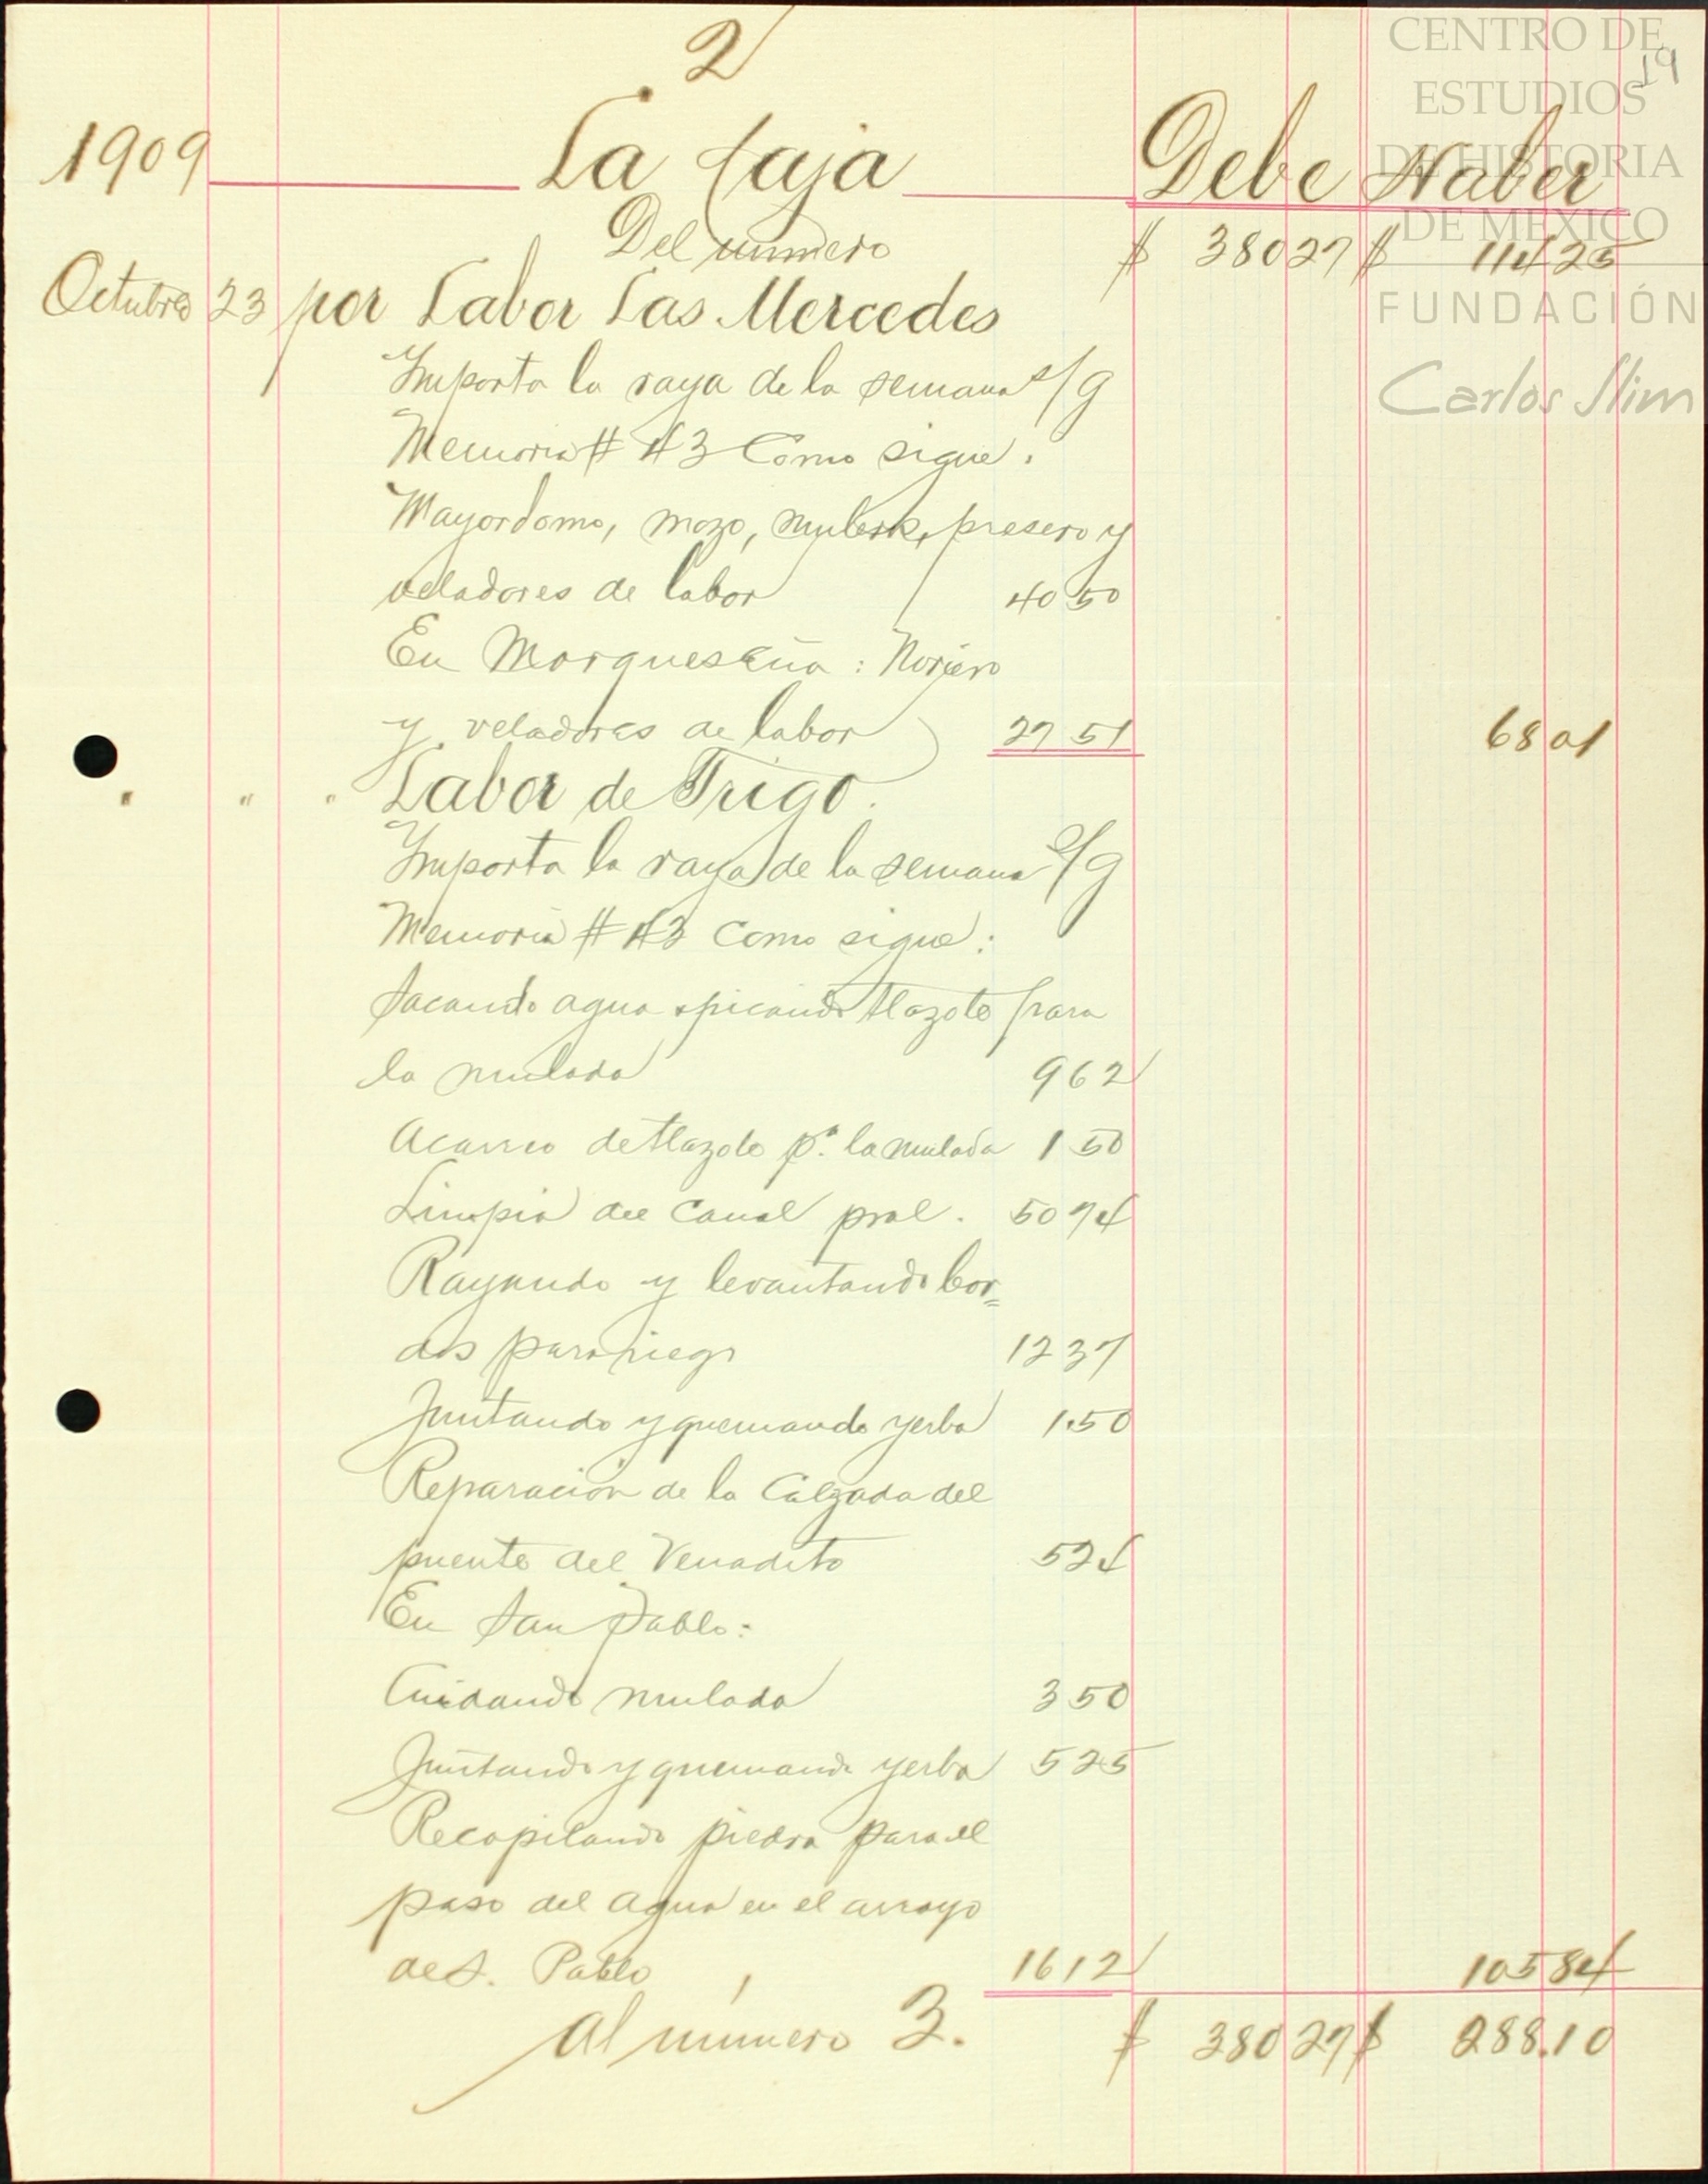 2
19
1909 La Caja Debe Haber
Del número $ 380 27 $ 114 25
Octubre 23 por Labor Las Mercedes
Importa la raya de la semana s/g
Memoria # 43 Como sigue.
Mayordomo, mozo, presero y
veladores de labor 40 50
En Morqueseña: Noriero
y veladores de labor 27 51 68 01
" " " Labor de Trigo.
Importa la raya de la semana s/g
Memoria # 43 como sigue:
Sacando agua y picando tlazole para
la mulada 9 62
Acarreo de tlazole pª. la mulada 1 50
Limpia del Canal pral. 50 74
Rayando y levantando bor=
dos para riego 12 37
Juntando y quemando yerba 1.50
Reparación de la Calzada del
puente del Venadito 5 24
En San Pablo:
Cuidando mulada 3 50
Juntando y quemando yerba 5 25
Recopilando piedra para el
paso del agua en el arroyo
de S. Pablo 16 12 105 84
Al número 3. $ 380 27 $ 288.10
CENTRO DE
ESTUDIOS
DE HISTORIA
DE MÉXICO
FUNDACIÓN
Carlos Slim